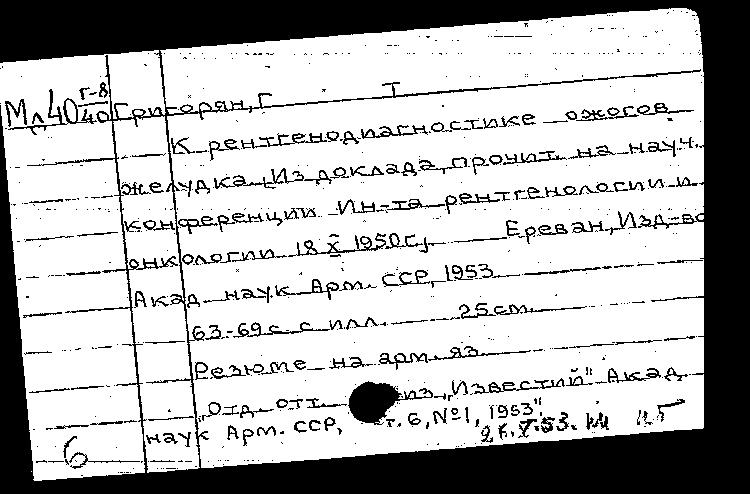 Мл40 Г-8/40 Григорян, Г Т
К рентгенодиагностике ожогов
желудка. [Из доклада, прочит. на науч.
конференции Ин-та рентгенологии и
онкологии 18 X 1950г.] Ереван, Изд-во
Акад. наук Арм. ССР, 1953
63-69 с. с илл. 25 см.
Резюме на арм. яз.
„Отд. отт. из „Известий" Акад
наук Арм. ССР, т. 6, №1, 1953".
6